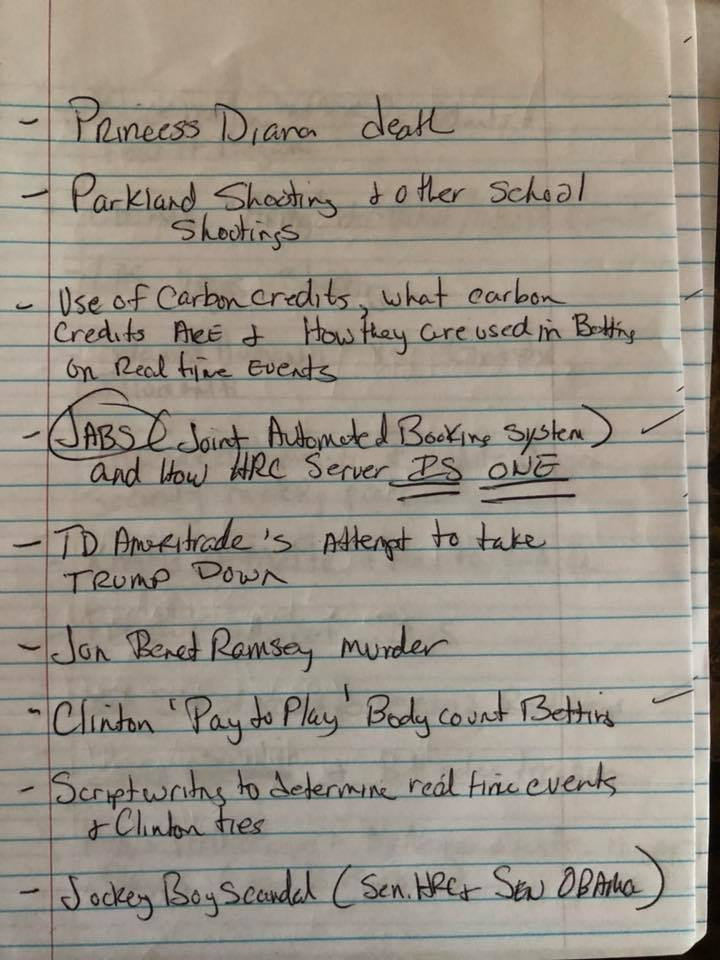 - Princess Diana death
- Parkland Shooting & other School
Shootings
- Use of Carbon credits, what carbon
Credits ARE & How they are used in Betting
on Real time Events
- JABS (Joint Automated Booking System)
and How HRC Server IS ONE
- TD Ameritrade's Attempt to take
TRUMP DOWN
- Jon Benet Ramsey murder
- Clinton 'Pay to Play' Body count Betting
- Scriptwriting to determine real time events
& Clinton ties
- Jockey Boy Scandal (Sen. HRC & SEN OBAMA)